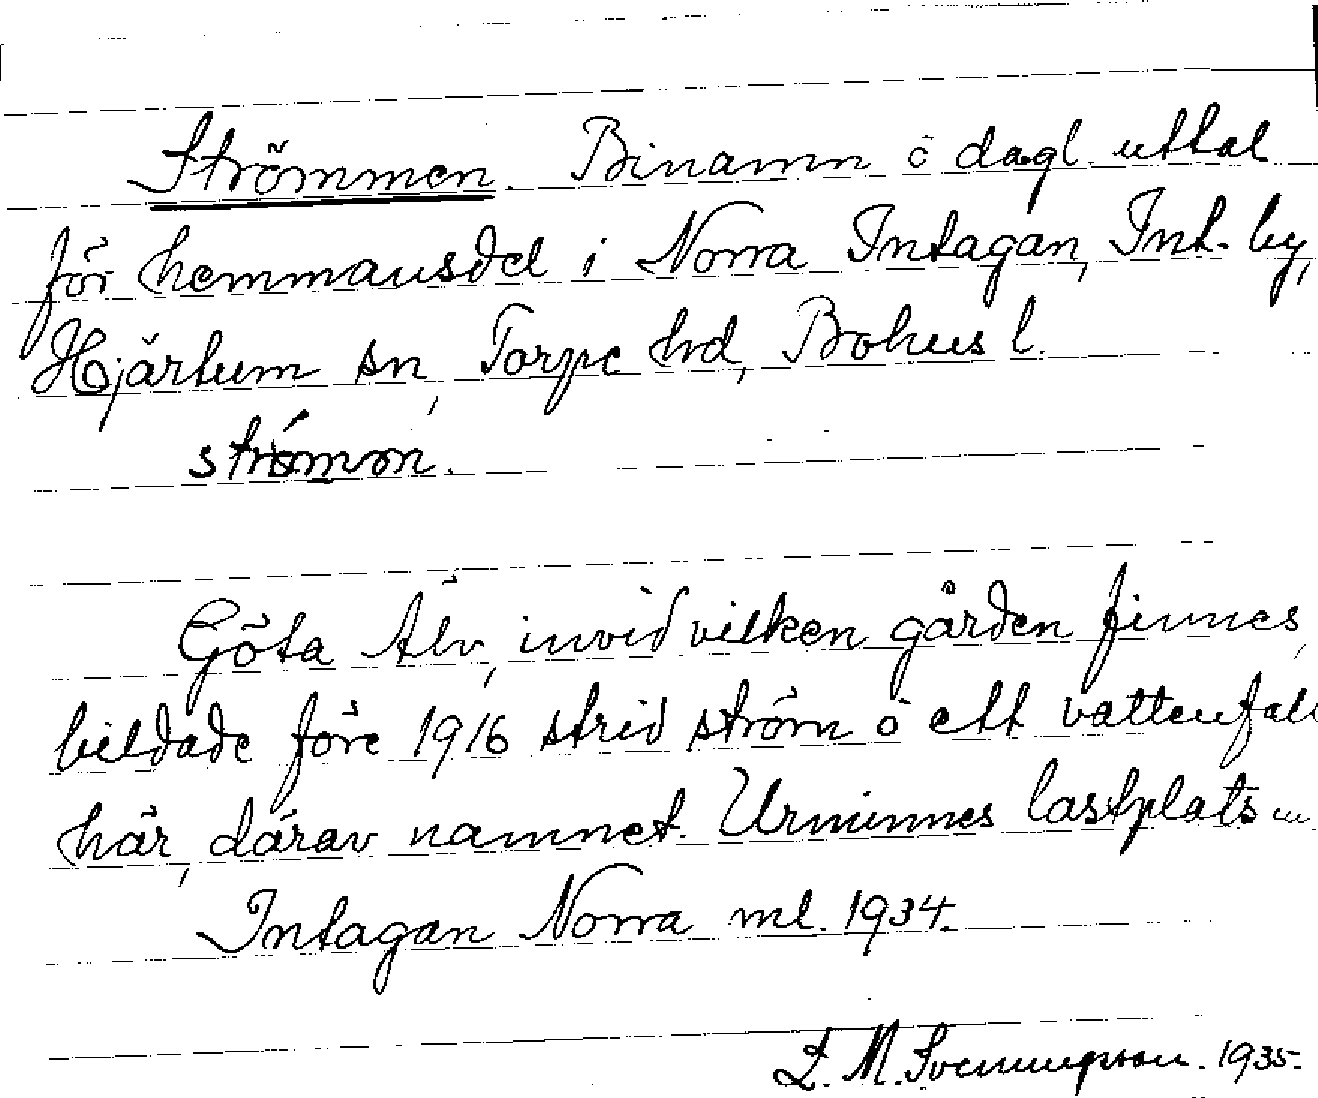 Strömmen. Binamn o dagl. uttal
för hemmansdel i Norra Intagan, Int. by,
Hjärtum sn, Torpe hd, Bohus l.
strömon.
Göta Älv, invid vilken gården finnes,
bildade före 1916 strid ström o ett vattenfall
här, därav namnet. Urminnes lastplats
Intagan Norra ml. 1934.
L. M. Svenungsson. 1935.